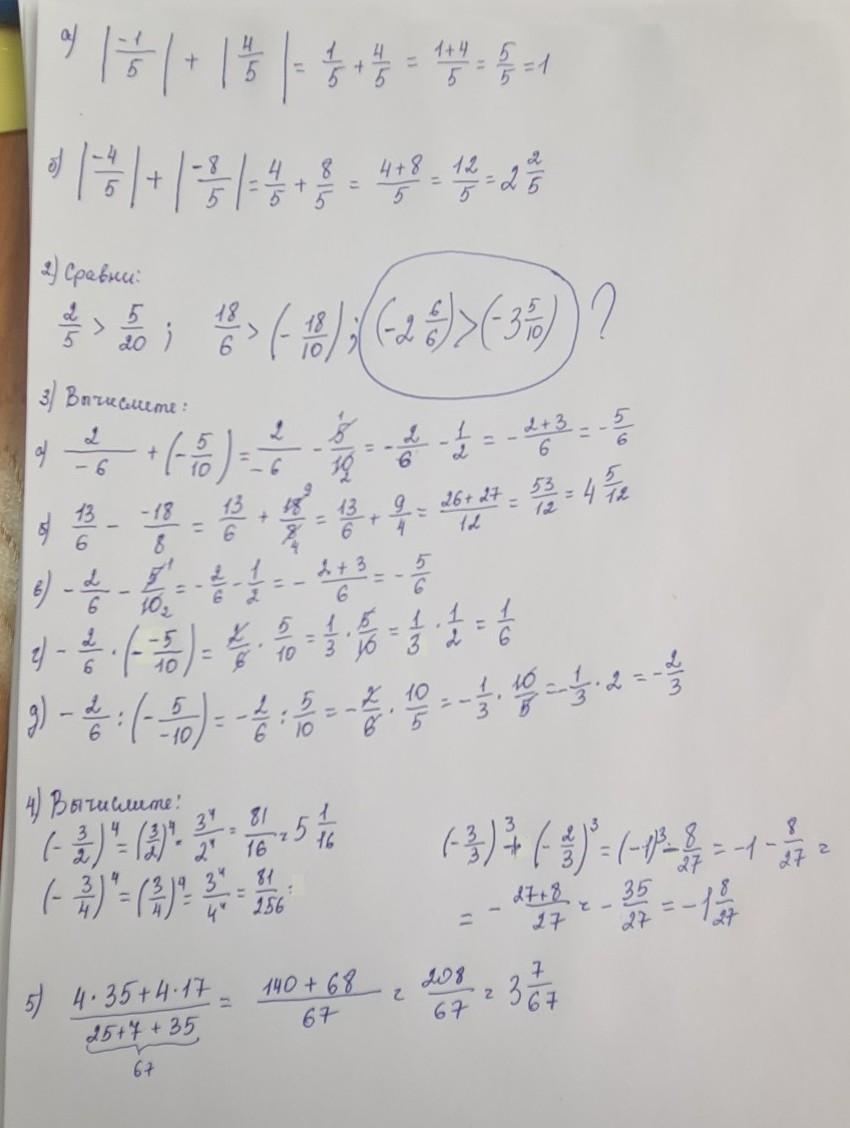 а) |-1/5| + |4/5| = 1/5 + 4/5 = (1+4)/5 = 5/5 = 1
б) |-4/5| + |-8/5| = 4/5 + 8/5 = (4+8)/5 = 12/5 = 2 2/5
2) Сравни:
2/5 > 5/20 ; 18/6 > (- 18/10) ; (-2 6/6) > (-3 5/10) ?
3) Вычислите:
а) 2/-6 + (- 5/10) = 2/-6 - 5/10 = - 2/6 - 1/2 = - (2+3)/6 = - 5/6
б) 13/6 - -18/8 = 13/6 + 18/8 = 13/6 + 9/4 = (26+27)/12 = 53/12 = 4 5/12
в) - 2/6 - 5/10 = - 2/6 - 1/2 = - (2+3)/6 = - 5/6
г) - 2/6 · (- -5/10) = 2/6 · 5/10 = 1/3 · 5/10 = 1/3 · 1/2 = 1/6
д) - 2/6 : (- 5/-10) = - 2/6 : 5/10 = - 2/6 · 10/5 = - 1/3 · 10/5 = - 1/3 · 2 = - 2/3
4) Вычислите:
(- 3/2)^4 = (3/2)^4 = 3^4/2^4 = 81/16 = 5 1/16
(- 3/4)^4 = (3/4)^4 = 3^4/4^4 = 81/256
(- 3/3)^3 + (- 2/3)^3 = (-1)^3 - 8/27 = -1 - 8/27 =
= - (27+8)/27 = - 35/27 = -1 8/27
5) (4·35+4·17)/(25+7+35) = (140+68)/67 = 208/67 = 3 7/67
67